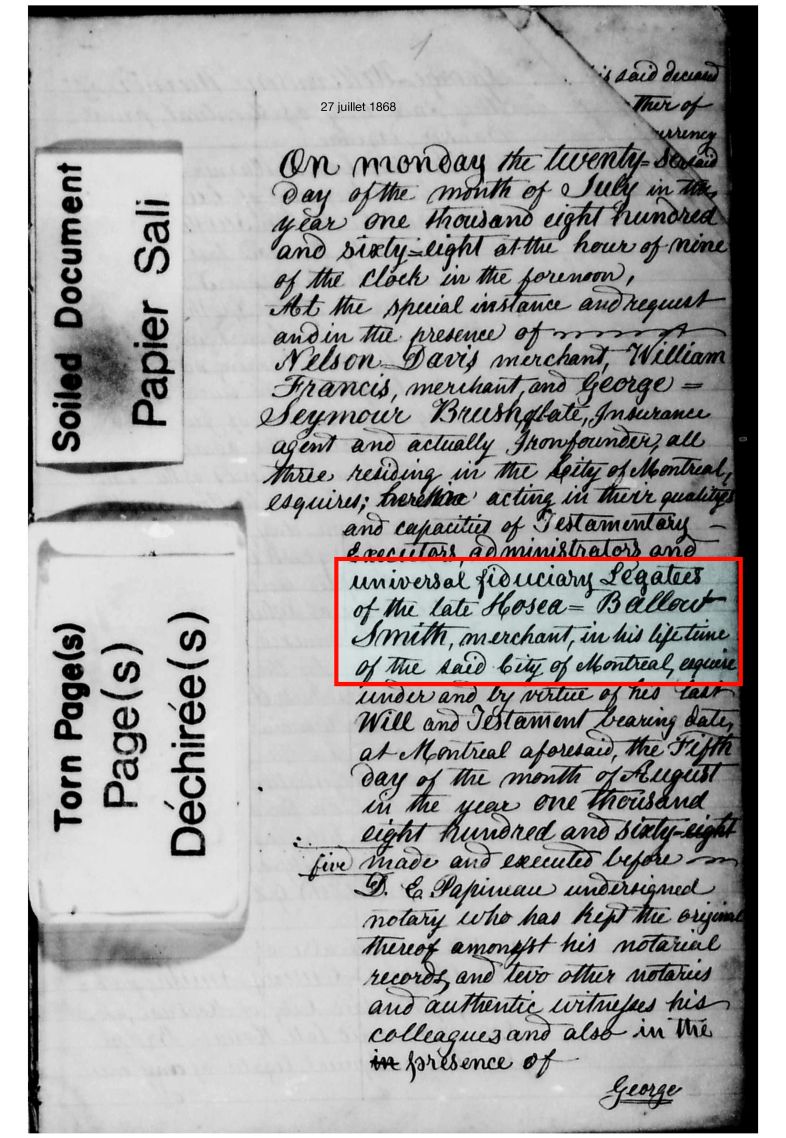 1
is said deceased
ther of
urrency
27 juillet 1868
Soiled Document
Papier Sali
Torn Page(s)
Page(s)
Déchirée(s)
On monday the twenty-
day of the month of July in the
year one thousand eight hundred
and sixty=eight at the hour of nine
of the clock in the forenoon,
At the special instance and request
and in the presence of
Nelson Davis merchant, William
Francis, merchant, and George =
Seymour Brush, late, Insurance
agent and actually Ironfounder, all
three residing in the City of Montreal,
esquires; acting in their qualities
and capacities of Testamentary –
Executors, administrators and
universal fiduciary Legatees
of the late Hosea = Ballou
Smith, merchant, in his lifetime
of the said City of Montreal, esquire
under and by virtue of his last
Will and Testament bearing date,
at Montreal aforesaid, the Fifth
day of the month of August
in the year one thousand
eight hundred and sixty-eight
five made and executed before
D. E. Papineau undersigned
notary who has kept the original
thereof amongst his notarial
records, and two other notaries
and authentic witnesses his
colleagues and also in the
in presence of
George